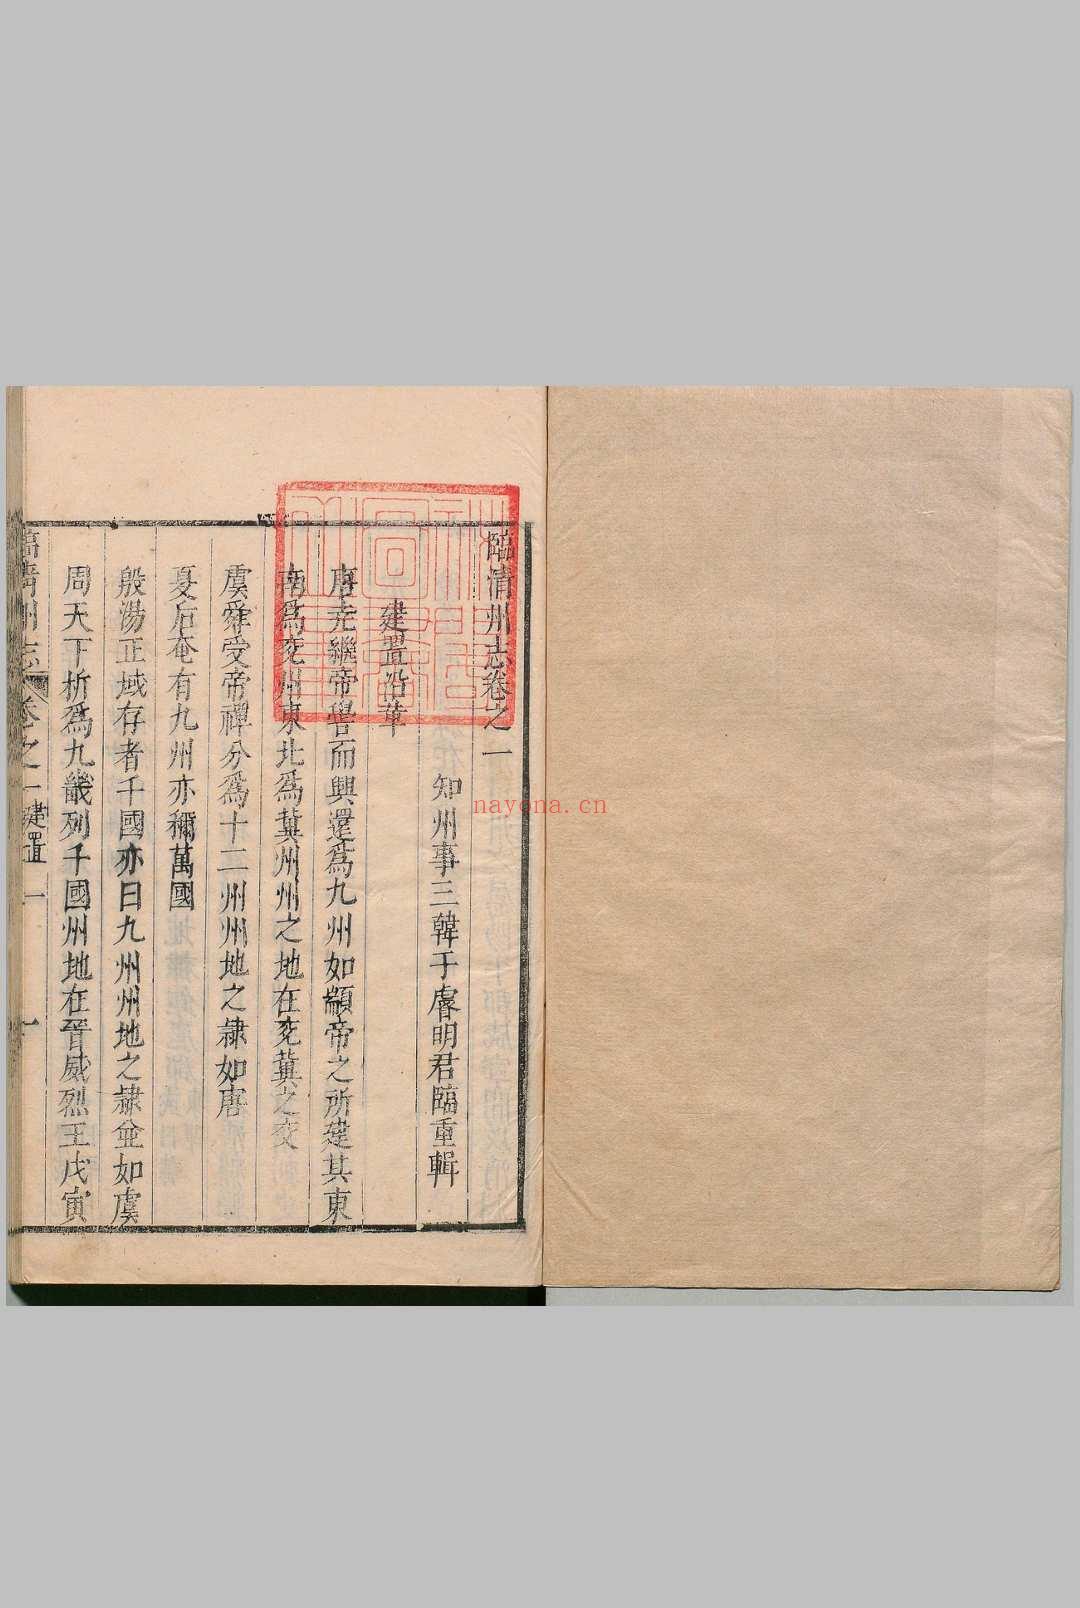 臨清州志卷之一
知州事三韓于睿明君臨重輯
建置沿革
唐尧繼帝嚳而興還爲九州如顓帝之所建其東
南爲兖州東北爲冀州州之地在兖冀之交
虞舜受帝禪分爲十二州州地之隷如唐
夏后奄有九州亦稱萬國
殷湯正域存者千國亦曰九州州地之隷並如虞
周天下析爲九畿列千國州地在晉威烈王戊寅
臨清州志 卷之一 建置 一
nayona.cn